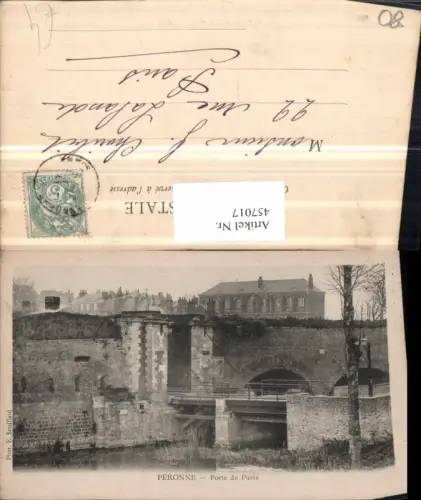 Monsieur J.
22 rue Lalande
Paris
STALE
à l'adresse
Artikel Nr.
457017
PÉRONNE — Porte de Paris
Phot. E. Souillard